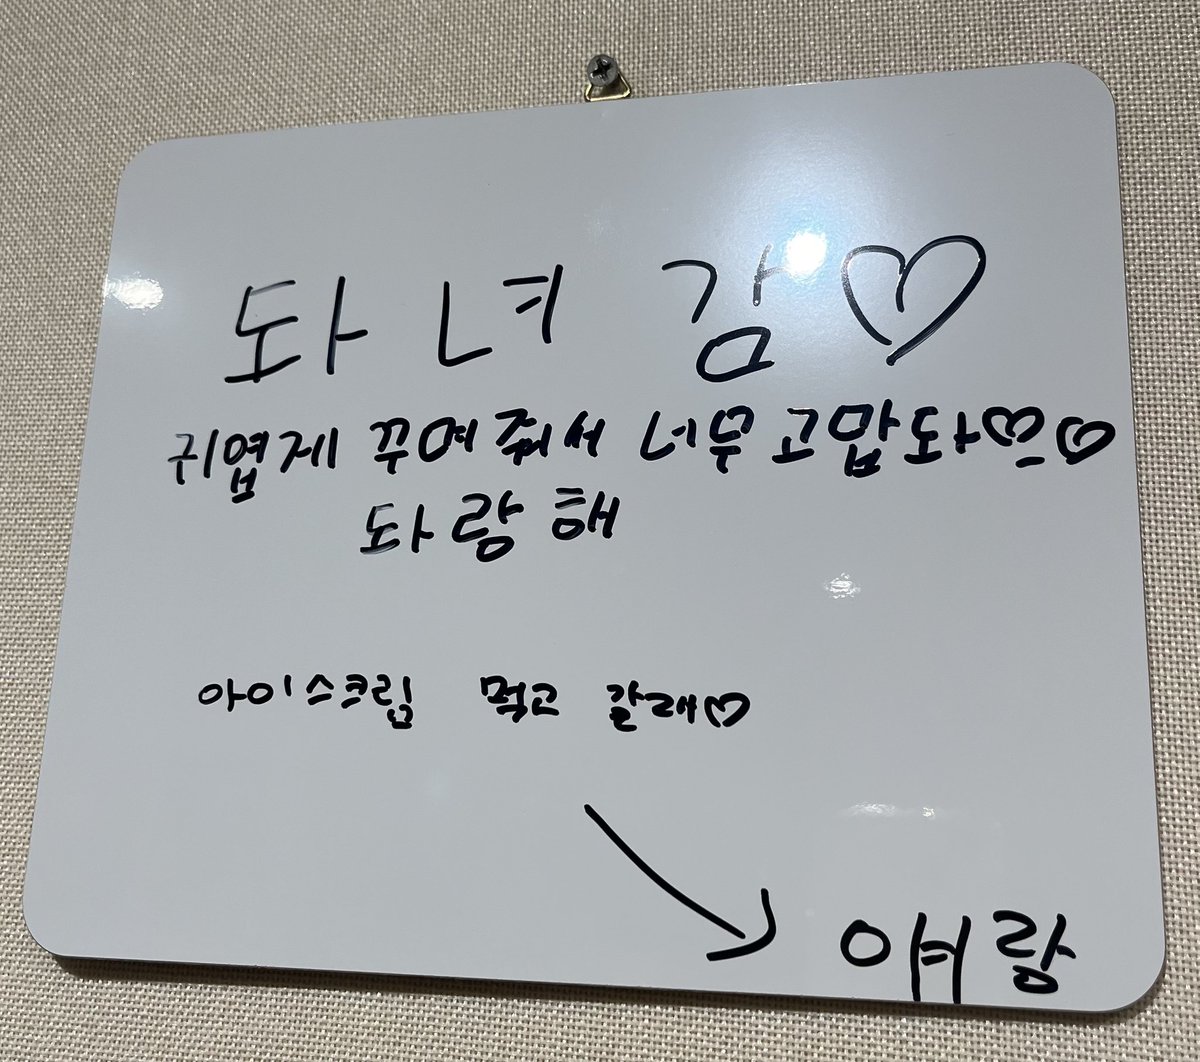 돠 녀 감♡
귀엽게 꾸며줘서 너무 고맙돠♡_♡
돠랑해
아이스크림 먹고 갈래♡
얘랑